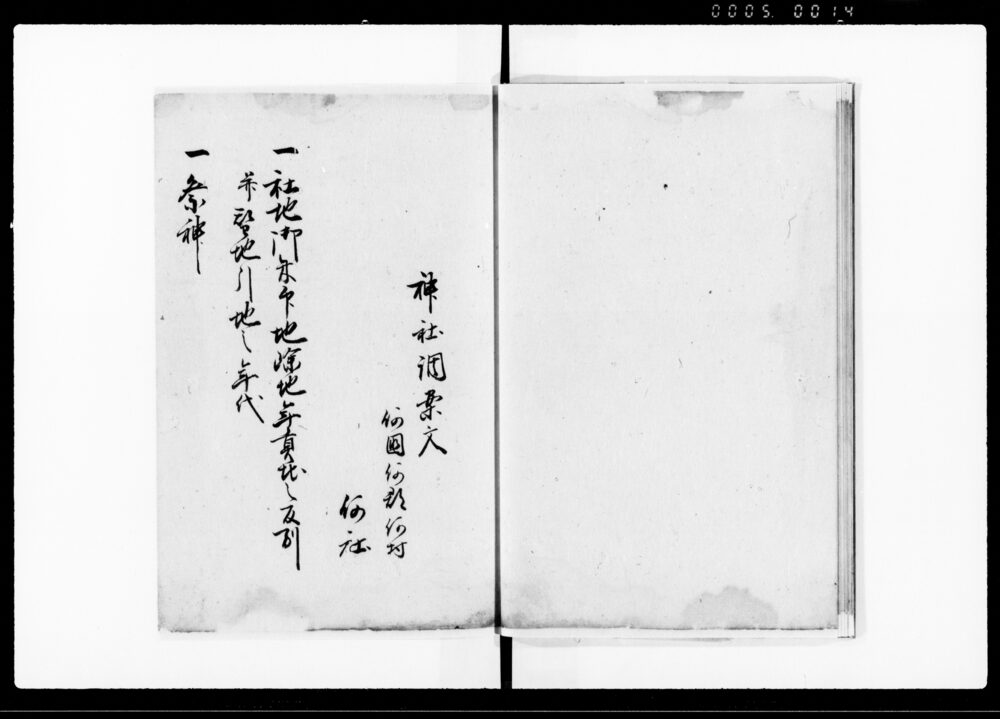 0005. 0014
神社調案文
何國何郡何村
何社
一社地御朱印地除地年貢地之反別
并替地引地之年代
一祭神